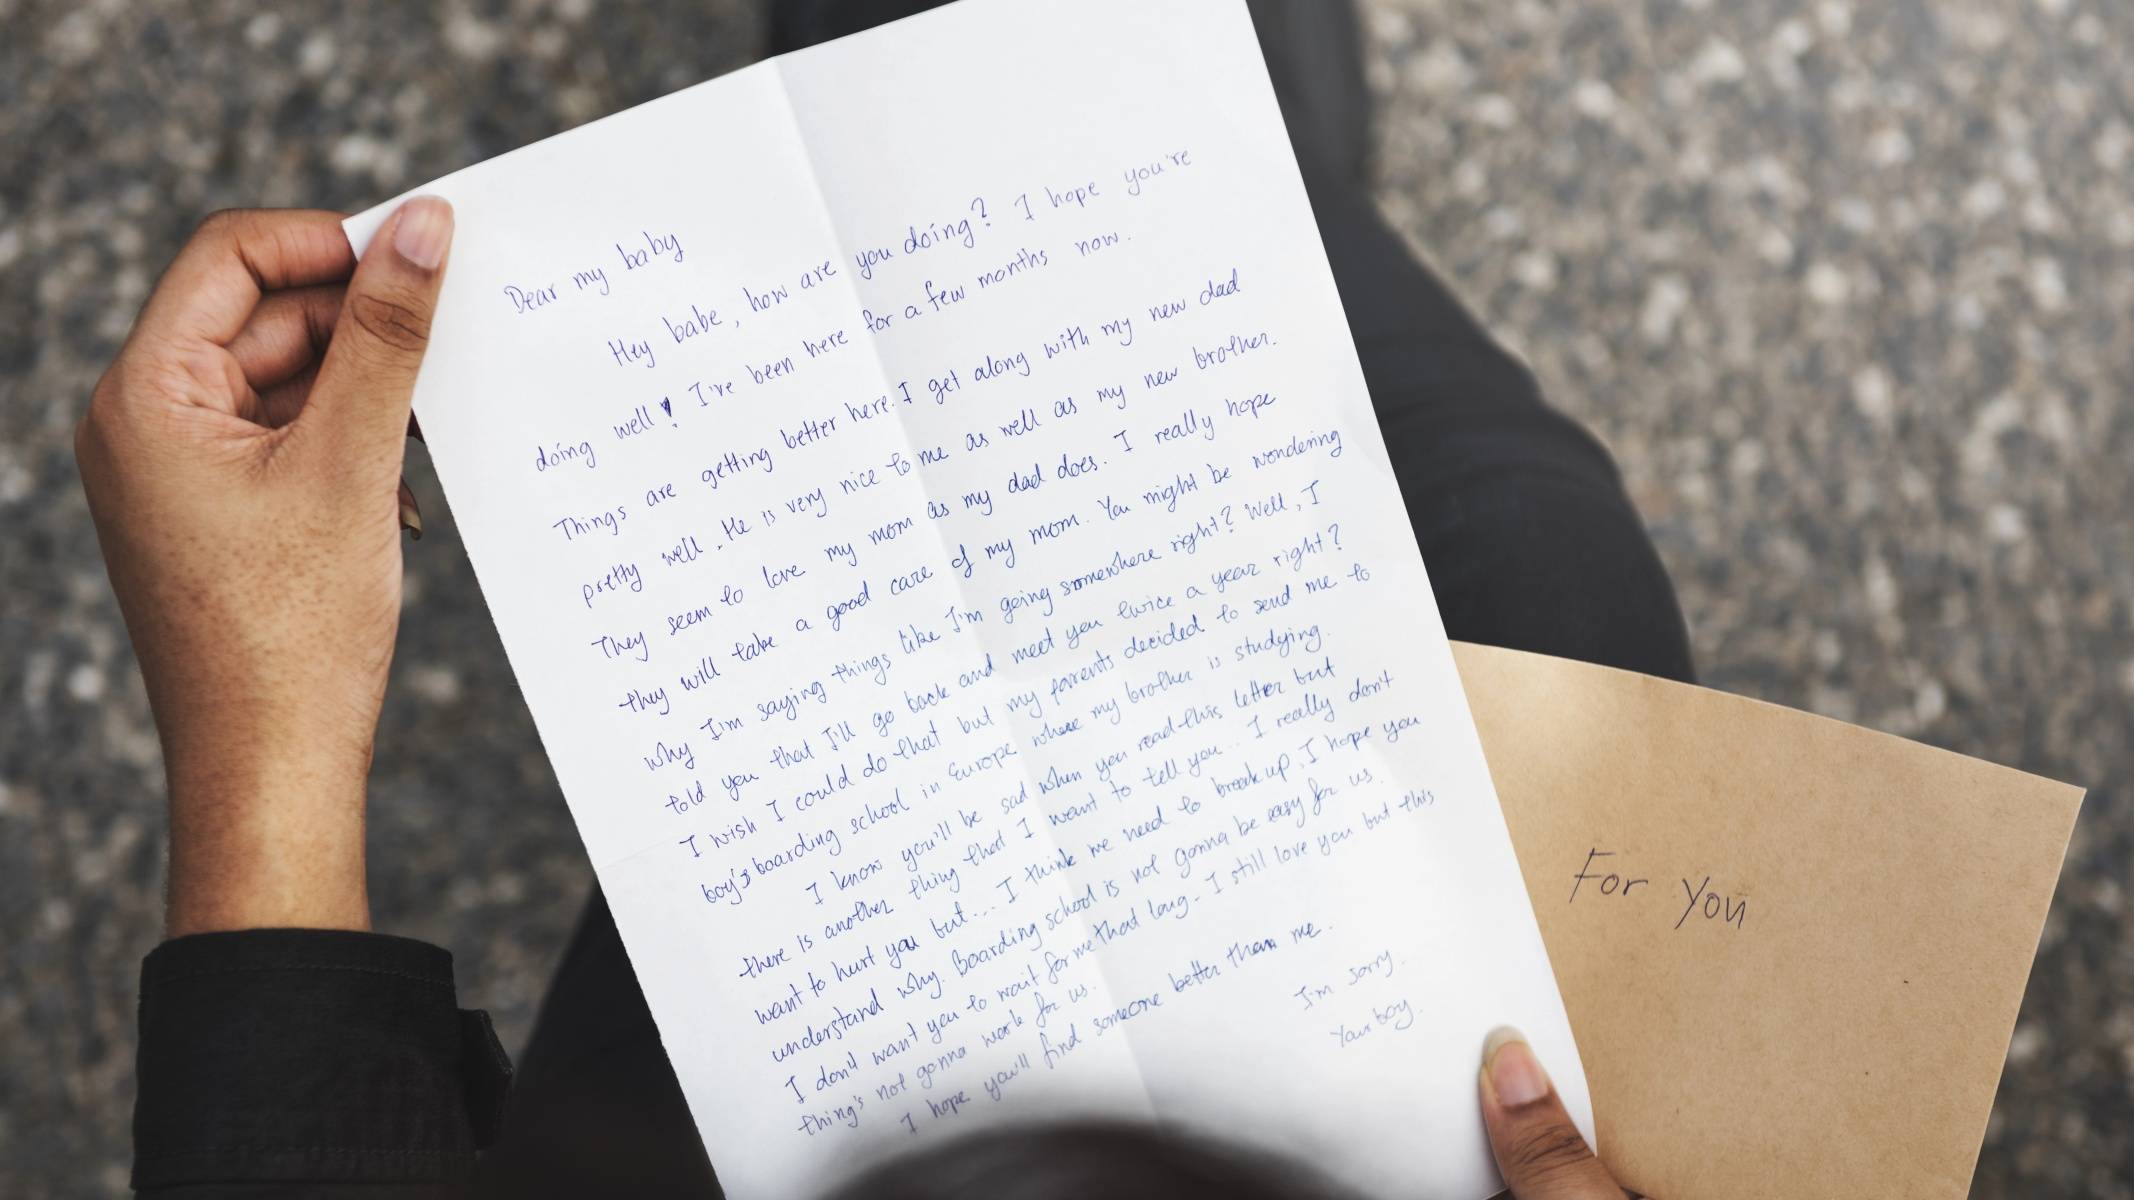 Dear my baby
Hey babe, how are you doing? I hope you're
doing well! I've been here for a few months now.
Things are getting better here. I get along with my new dad
pretty well. He is very nice to me as well as my new brother.
They seem to love my mom as my dad does. I really hope
they will take a good care of my mom. You might be wondering
why I'm saying things like I'm going somewhere right? Well, I
told you that I'll go back and meet you twice a year right?
I wish I could do that but my parents decided to send me to
boy's boarding school in Europe where my brother is studying.
I know you'll be sad when you read this letter but
there is another thing that I want to tell you.. I really don't
want to hurt you but... I think we need to break up. I hope you
understand why. Boarding school is not gonna be easy for us.
I don't want you to wait for me that long. I still love you but this
thing's not gonna work for us.
I hope you'll find someone better than me.
I'm sorry.
Your boy.
For You